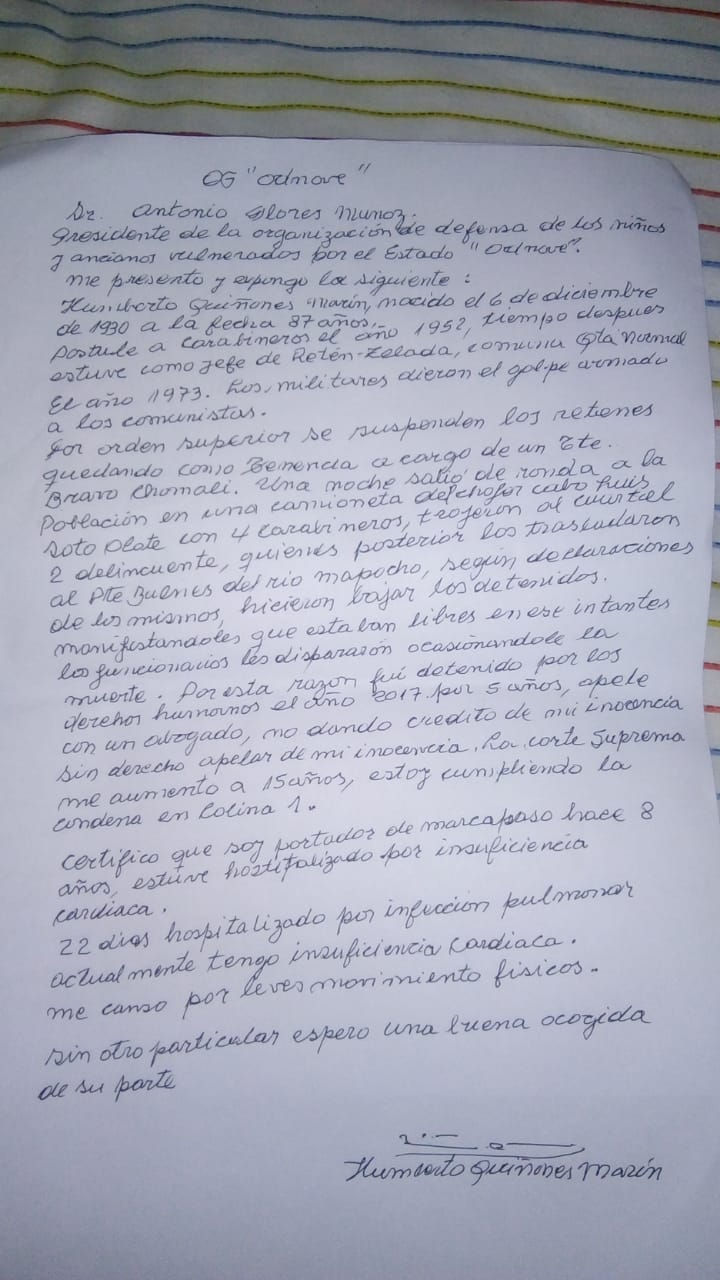 OG "Odnove"
Dr. Antonio Flores Munoz.
Presidente de la organización de defensa de los niños
y ancianos vulnerados por el Estado "Odnove".
me presento y expongo lo siguiente :
Humberto Quiñones Marín, nacido el 6 de diciembre
de 1930 a la fecha 87 años,
Postule a carabineros el año 1952, tiempo despues
estuve como jefe de Retén-Zelada, comuna Qta Normal
El año 1973. Los militares dieron el golpe armado
a los comunistas.
por orden superior se suspenden los retenes
quedando como Tenencia a cargo de un Tte.
Bravo Chomali. Una noche salió de ronda a la
Población en una camioneta del chofer cabo Luis
Soto Plate con 4 carabineros, trajeron al cuartel
2 delincuente, quienes posterior los trasladaron
al Pte Bulnes del rio mapocho, según declaraciones
de los mismos, hicieron bajar los detenidos.
manifestandoles que estaban libres en ese intantes
los funcionarios les dispararón ocasionandole la
muerte. Por esta razon fuí detenido por los
derechos humanos el año 2017 por 5 años, apele
con un abogado, no dando credito de mi inocencia
sin derecho apelar de mi inocencia. La corte Suprema
me aumento a 15 años, estoy cumpliendo la
condena en Colina 1.
certifico que soy portador de marcapaso hace 8
años, estúve hostitalizado por insuficiencia
cardiaca.
22 dias hospitalizado por infección pulmonar
actualmente tengo insuficiencia cardiaca.
me canso por leves movimiento físicos.
sin otro particular espero una buena acogida
de su parte
Humberto Quiñones Marín